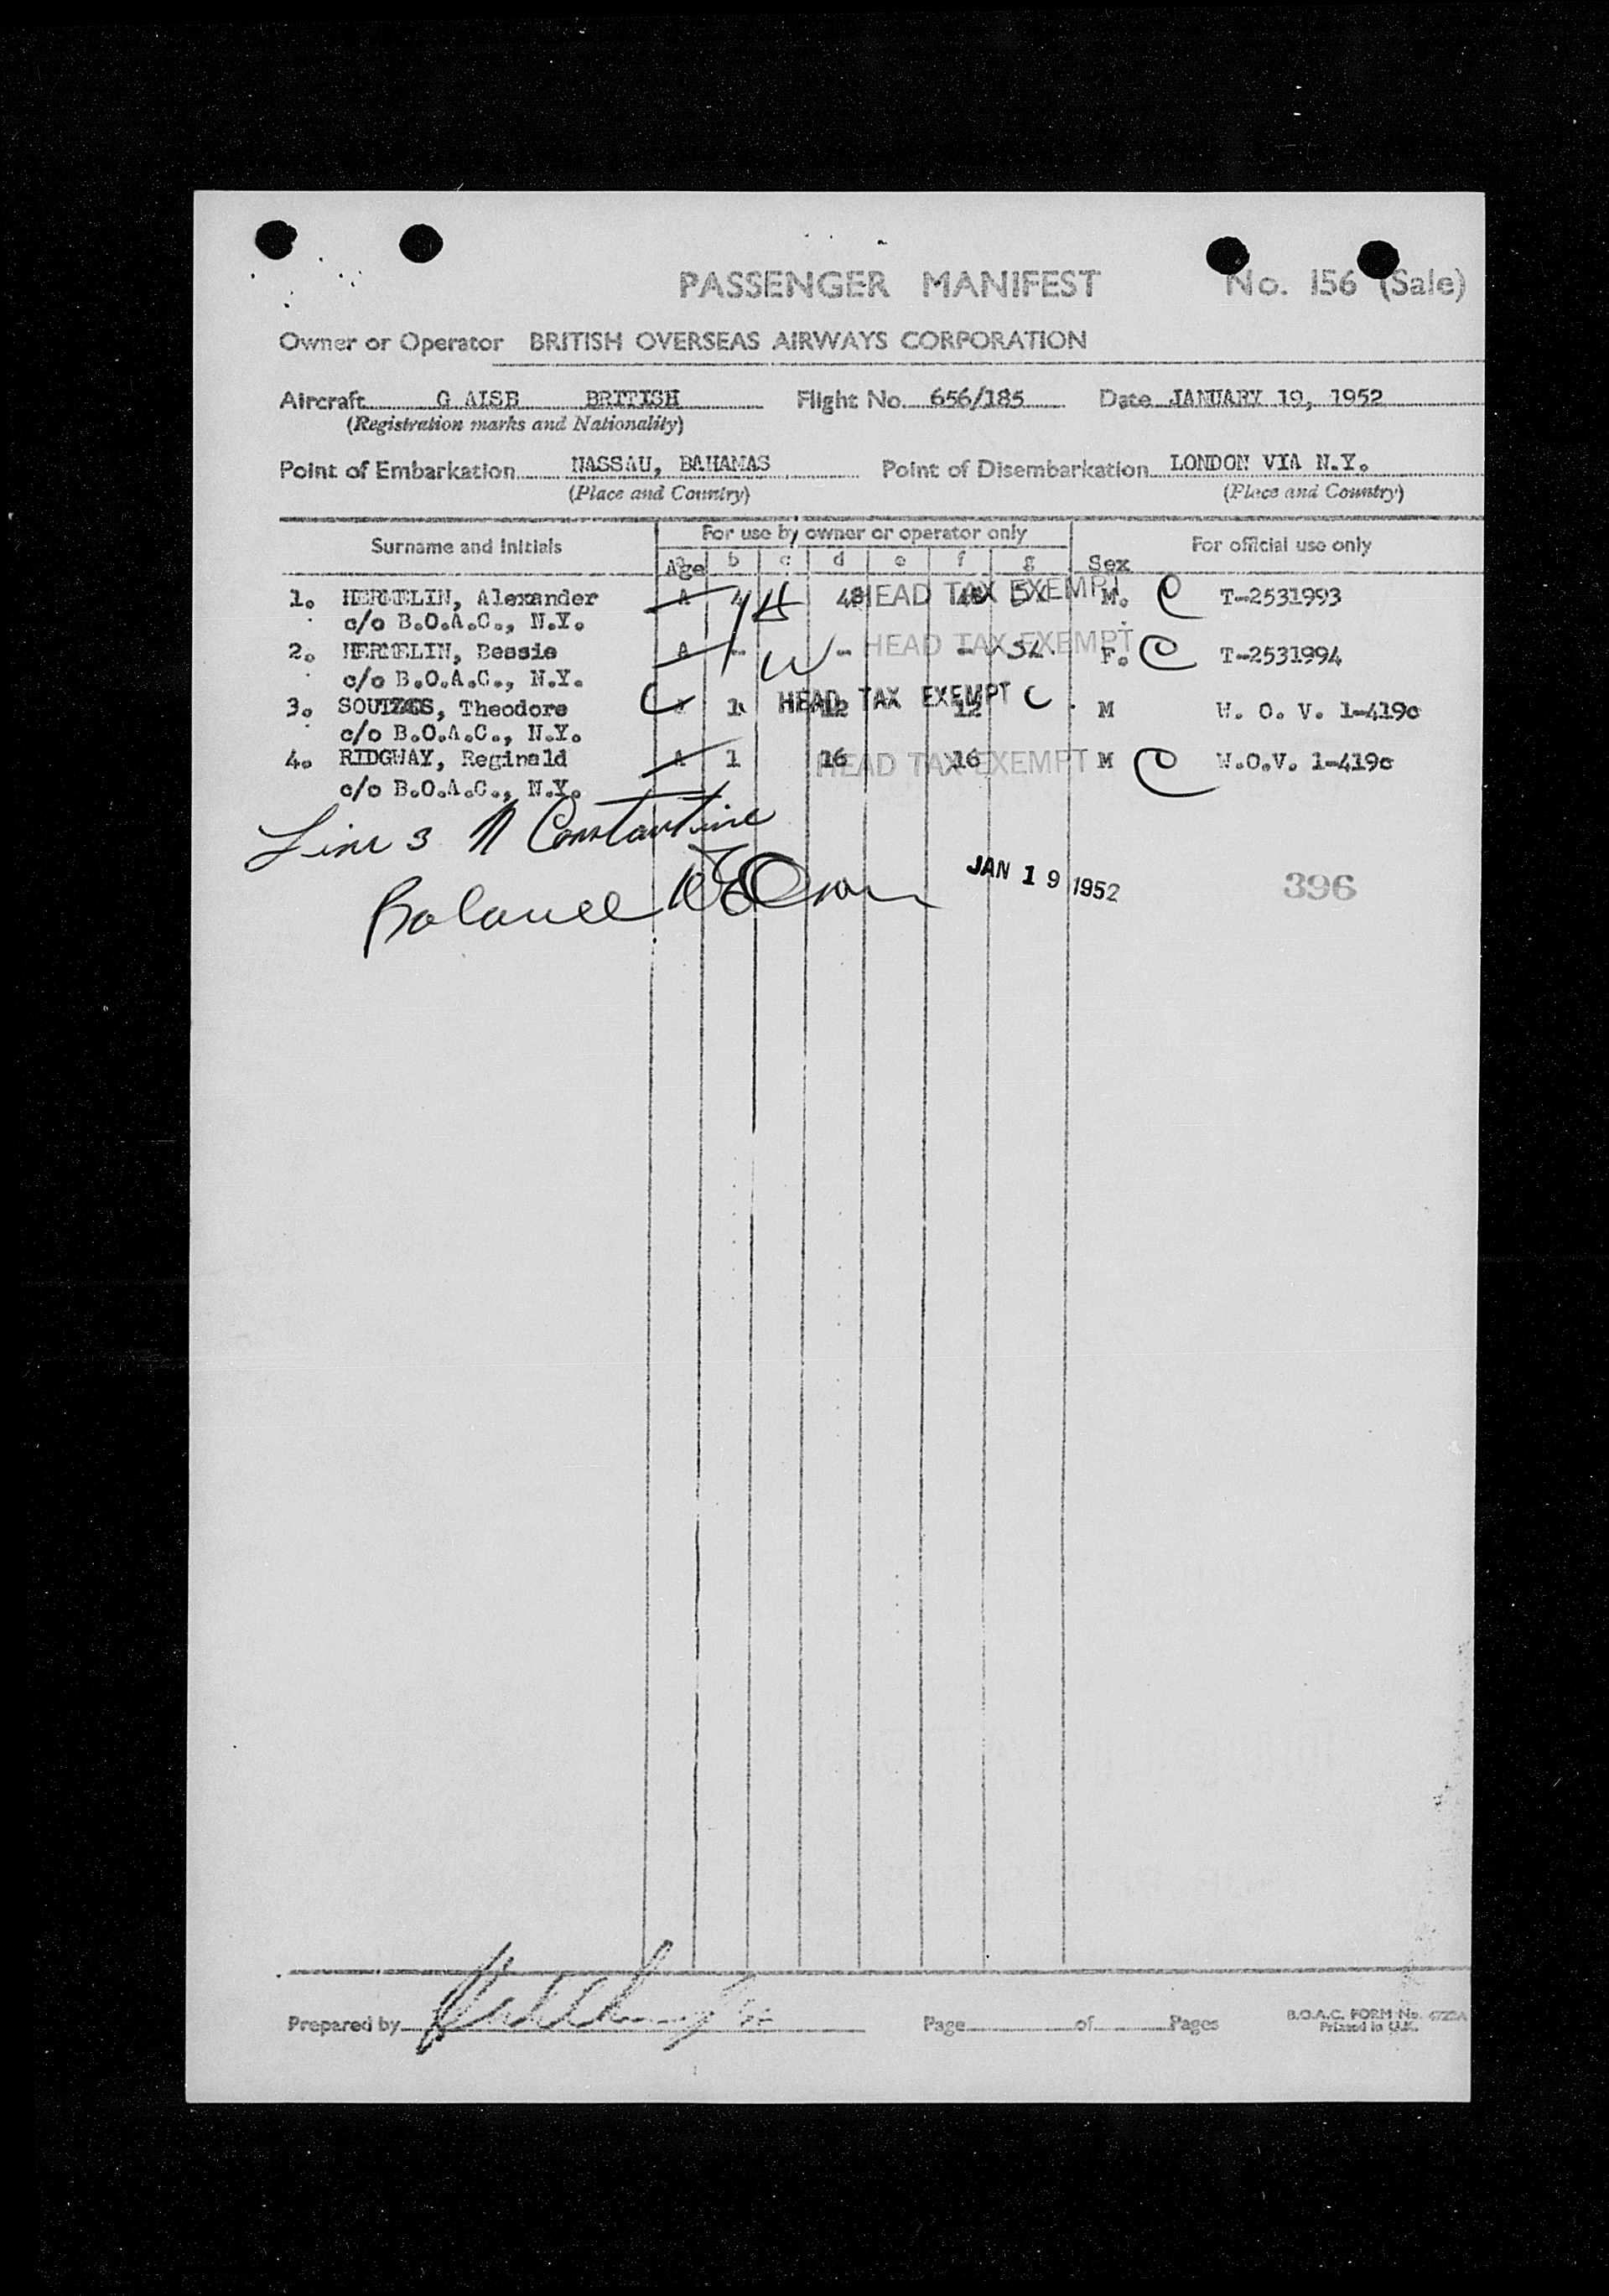 PASSENGER MANIFEST No. 156 (Sale)
Owner or Operator BRITISH OVERSEAS AIRWAYS CORPORATION
Aircraft G AISB BRITISH Flight No. 656/185 Date JANUARY 19, 1952
(Registration marks and Nationality)
Point of Embarkation NASSAU, BAHAMAS Point of Disembarkation LONDON VIA N.Y.
(Place and Country) (Place and Country)
Surname and Initials For use by owner or operator only For official use only
Age b c d e f g Sex
1. HERMELIN, Alexander A 4 H 48 HEAD TAX EXEMPT 48 M. C T-2531993
c/o B.O.A.C., N.Y.
2. HERMELIN, Bessie A - W - HEAD TAX EXEMPT - F. C T-2531994
c/o B.O.A.C., N.Y.
3. Theodore C 1 HEAD TAX EXEMPT 12 12 C M W. O. V. 1-419c
c/o B.O.A.C., N.Y.
4. RIDGWAY, Reginald A 1 16 HEAD TAX EXEMPT 16 M C W.O.V. 1-419c
c/o B.O.A.C., N.Y.
Line 3 N Constantine
Balance
JAN 19 1952 396
Prepared by Page of Pages B.O.A.C. FORM No.
Printed in U.K.